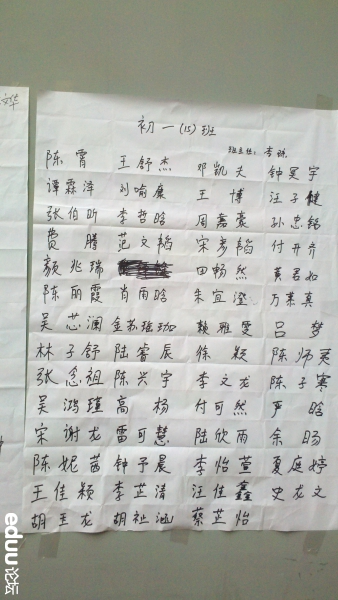 初一(15)班
班主任: 李
陈霄 王舒杰 邓凯文 钟昊宇
谭霖泽 刘喻康 王博 汪子健
张伯昕 李哲晗 周嘉豪 孙忠铭
费腾 范文韬 宋彦韬 付开齐
颜兆瑞 田畅然 黄君如
陈丽霞 肖雨晗 朱宜滢 万素真
吴芯澜 金苏瑶珈 赖雅雯 吕梦
林子舒 陆睿辰 徐颖 陈师昊
张念祖 陈兴宇 李文龙 陈子寒
吴鸿瑾 高杨 付可然 严晗
宋谢龙 雷可慧 陆欣雨 余旸
陈妮茜 钟予晨 李怡萱 夏庭婷
王佳颖 李芷清 汪佳鑫 史龙文
胡玉龙 胡祉涵 蔡芷怡
eduu论坛